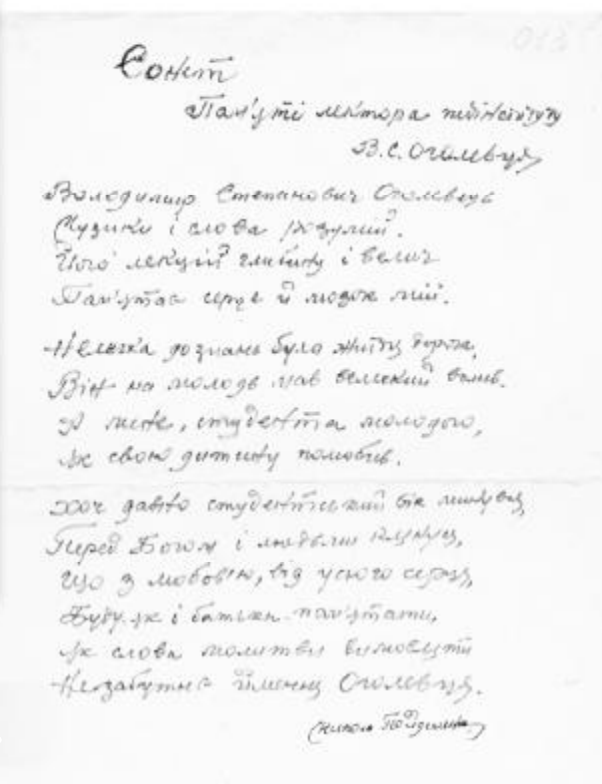 Сонет
Пам'яті лектора педінституту
В.С. Оголевця
Володимир Степанович Оголевець
Музики і слова розумій.
Його лекцій глибину і велич
Пам'ятає серце й мозок мій.
Нелегка до знань була життя дорога,
Він на молодь мав великий вплив.
А мене, студента молодого,
Як свою дитину полюбив.
Хоч давно студентський вік минувся,
Перед Богом і людьми клянуся,
Що з любов'ю, від усього серця,
Буду як і батька пам'ятати,
Як слова молитви вимовляти
Незабутнє ймення Оголевця.